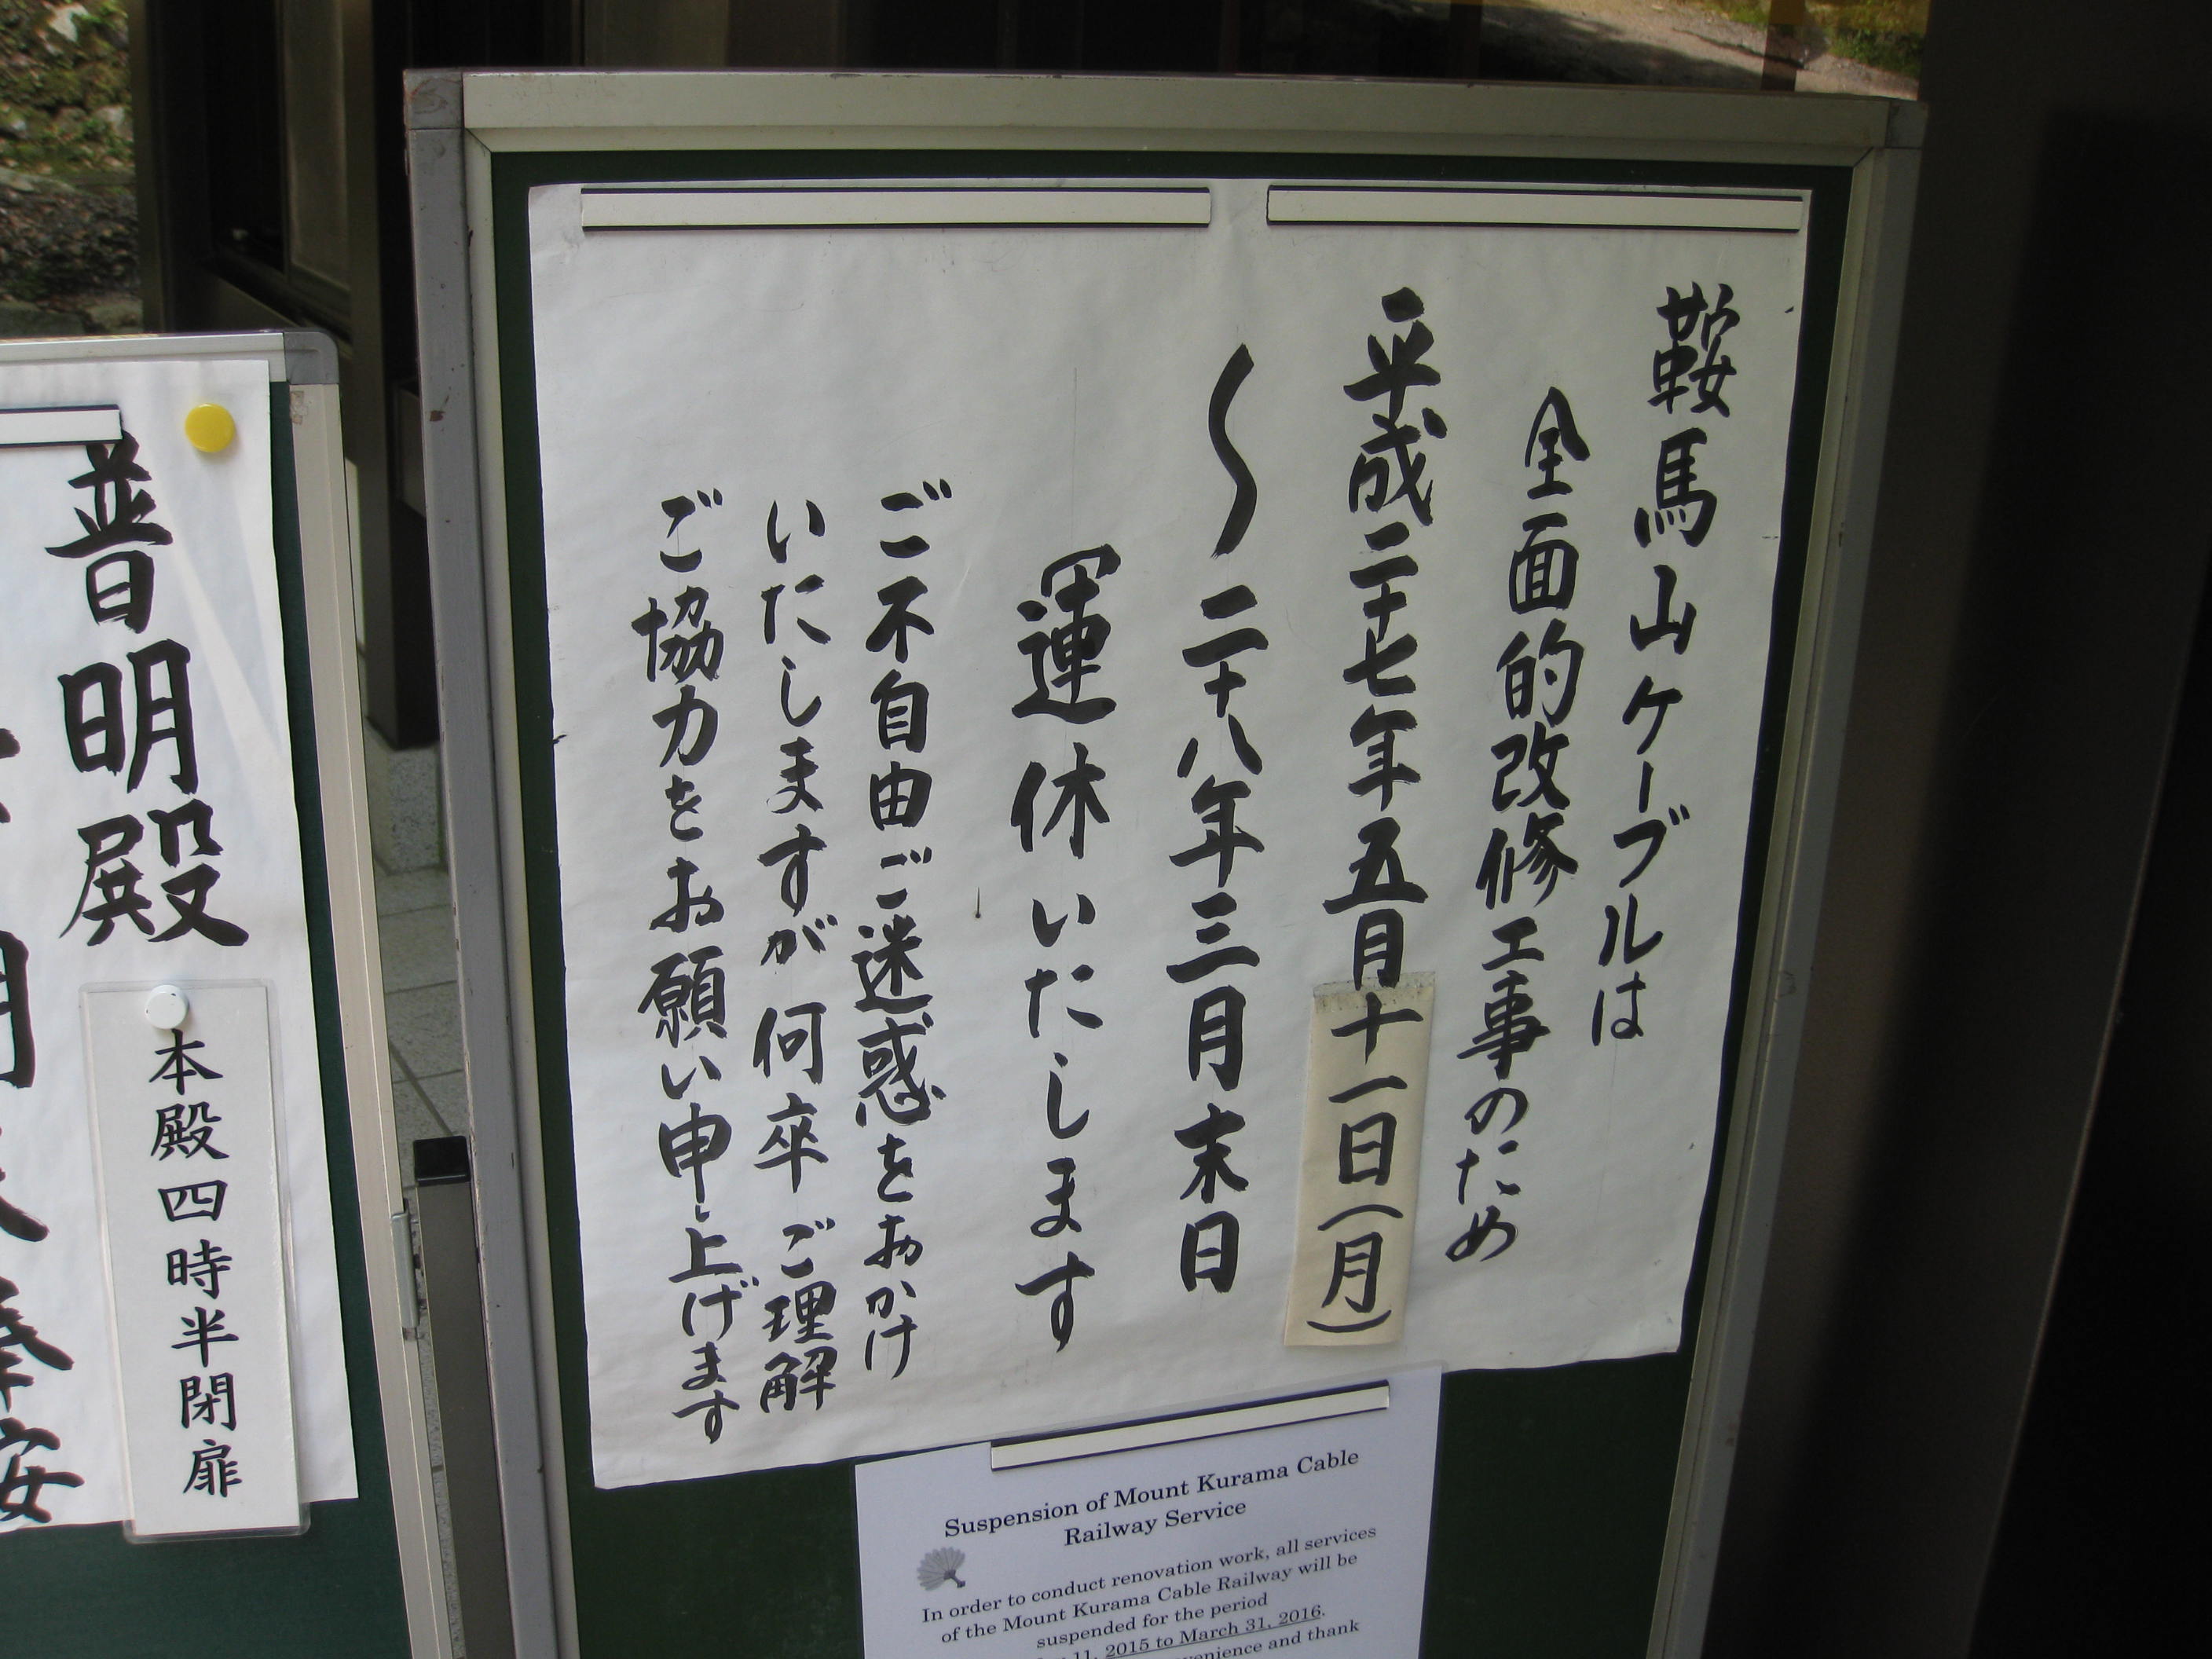 鞍馬山ケーブルは
全面的改修工事のため
平成二十七年五月十一日(月)
〜二十八年三月末日
運休いたします
ご不自由ご迷惑をおかけ
いたしますが何卒ご理解
ご協力をお願い申し上げます
Suspension of Mount Kurama Cable
Railway Service
In order to conduct renovation work, all services
of the Mount Kurama Cable Railway will be
suspended for the period
11, 2015 to March 31, 2016.
and thank
普明殿
本殿四時半閉扉